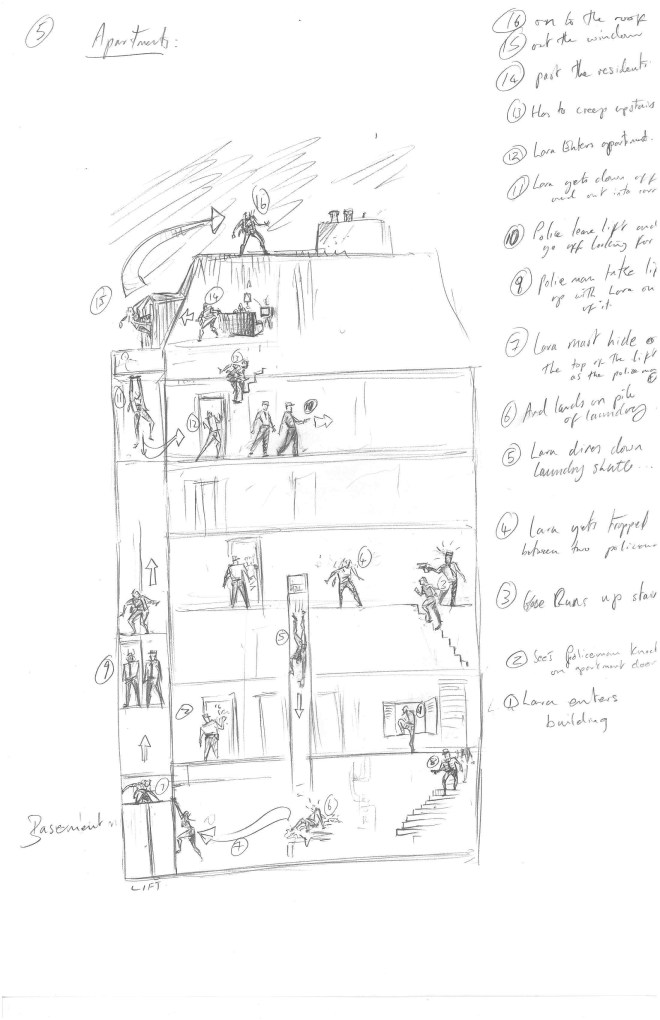 5 Apartments:
16 on to the roof
15 out the window
14 past the residents
13 Has to creep upstairs
12 Lara Enters apartment.
11 Lara gets down off
and out into
10 Police leave lift and
go off looking for
9 Police man take
up with Lara on
of it.
7 Lara must hide
The top of the lift
as the
6 And lands on pile
of laundry
5 Lara dives down
laundry shute...
4 Lara gets trapped
between two
3 Runs up
2 See's Policeman
on apartment door
1 Lara enters
building
16
15
14
11
12
10
4
3
5
9
2
1
7
8
6
7
Basement
LIFT